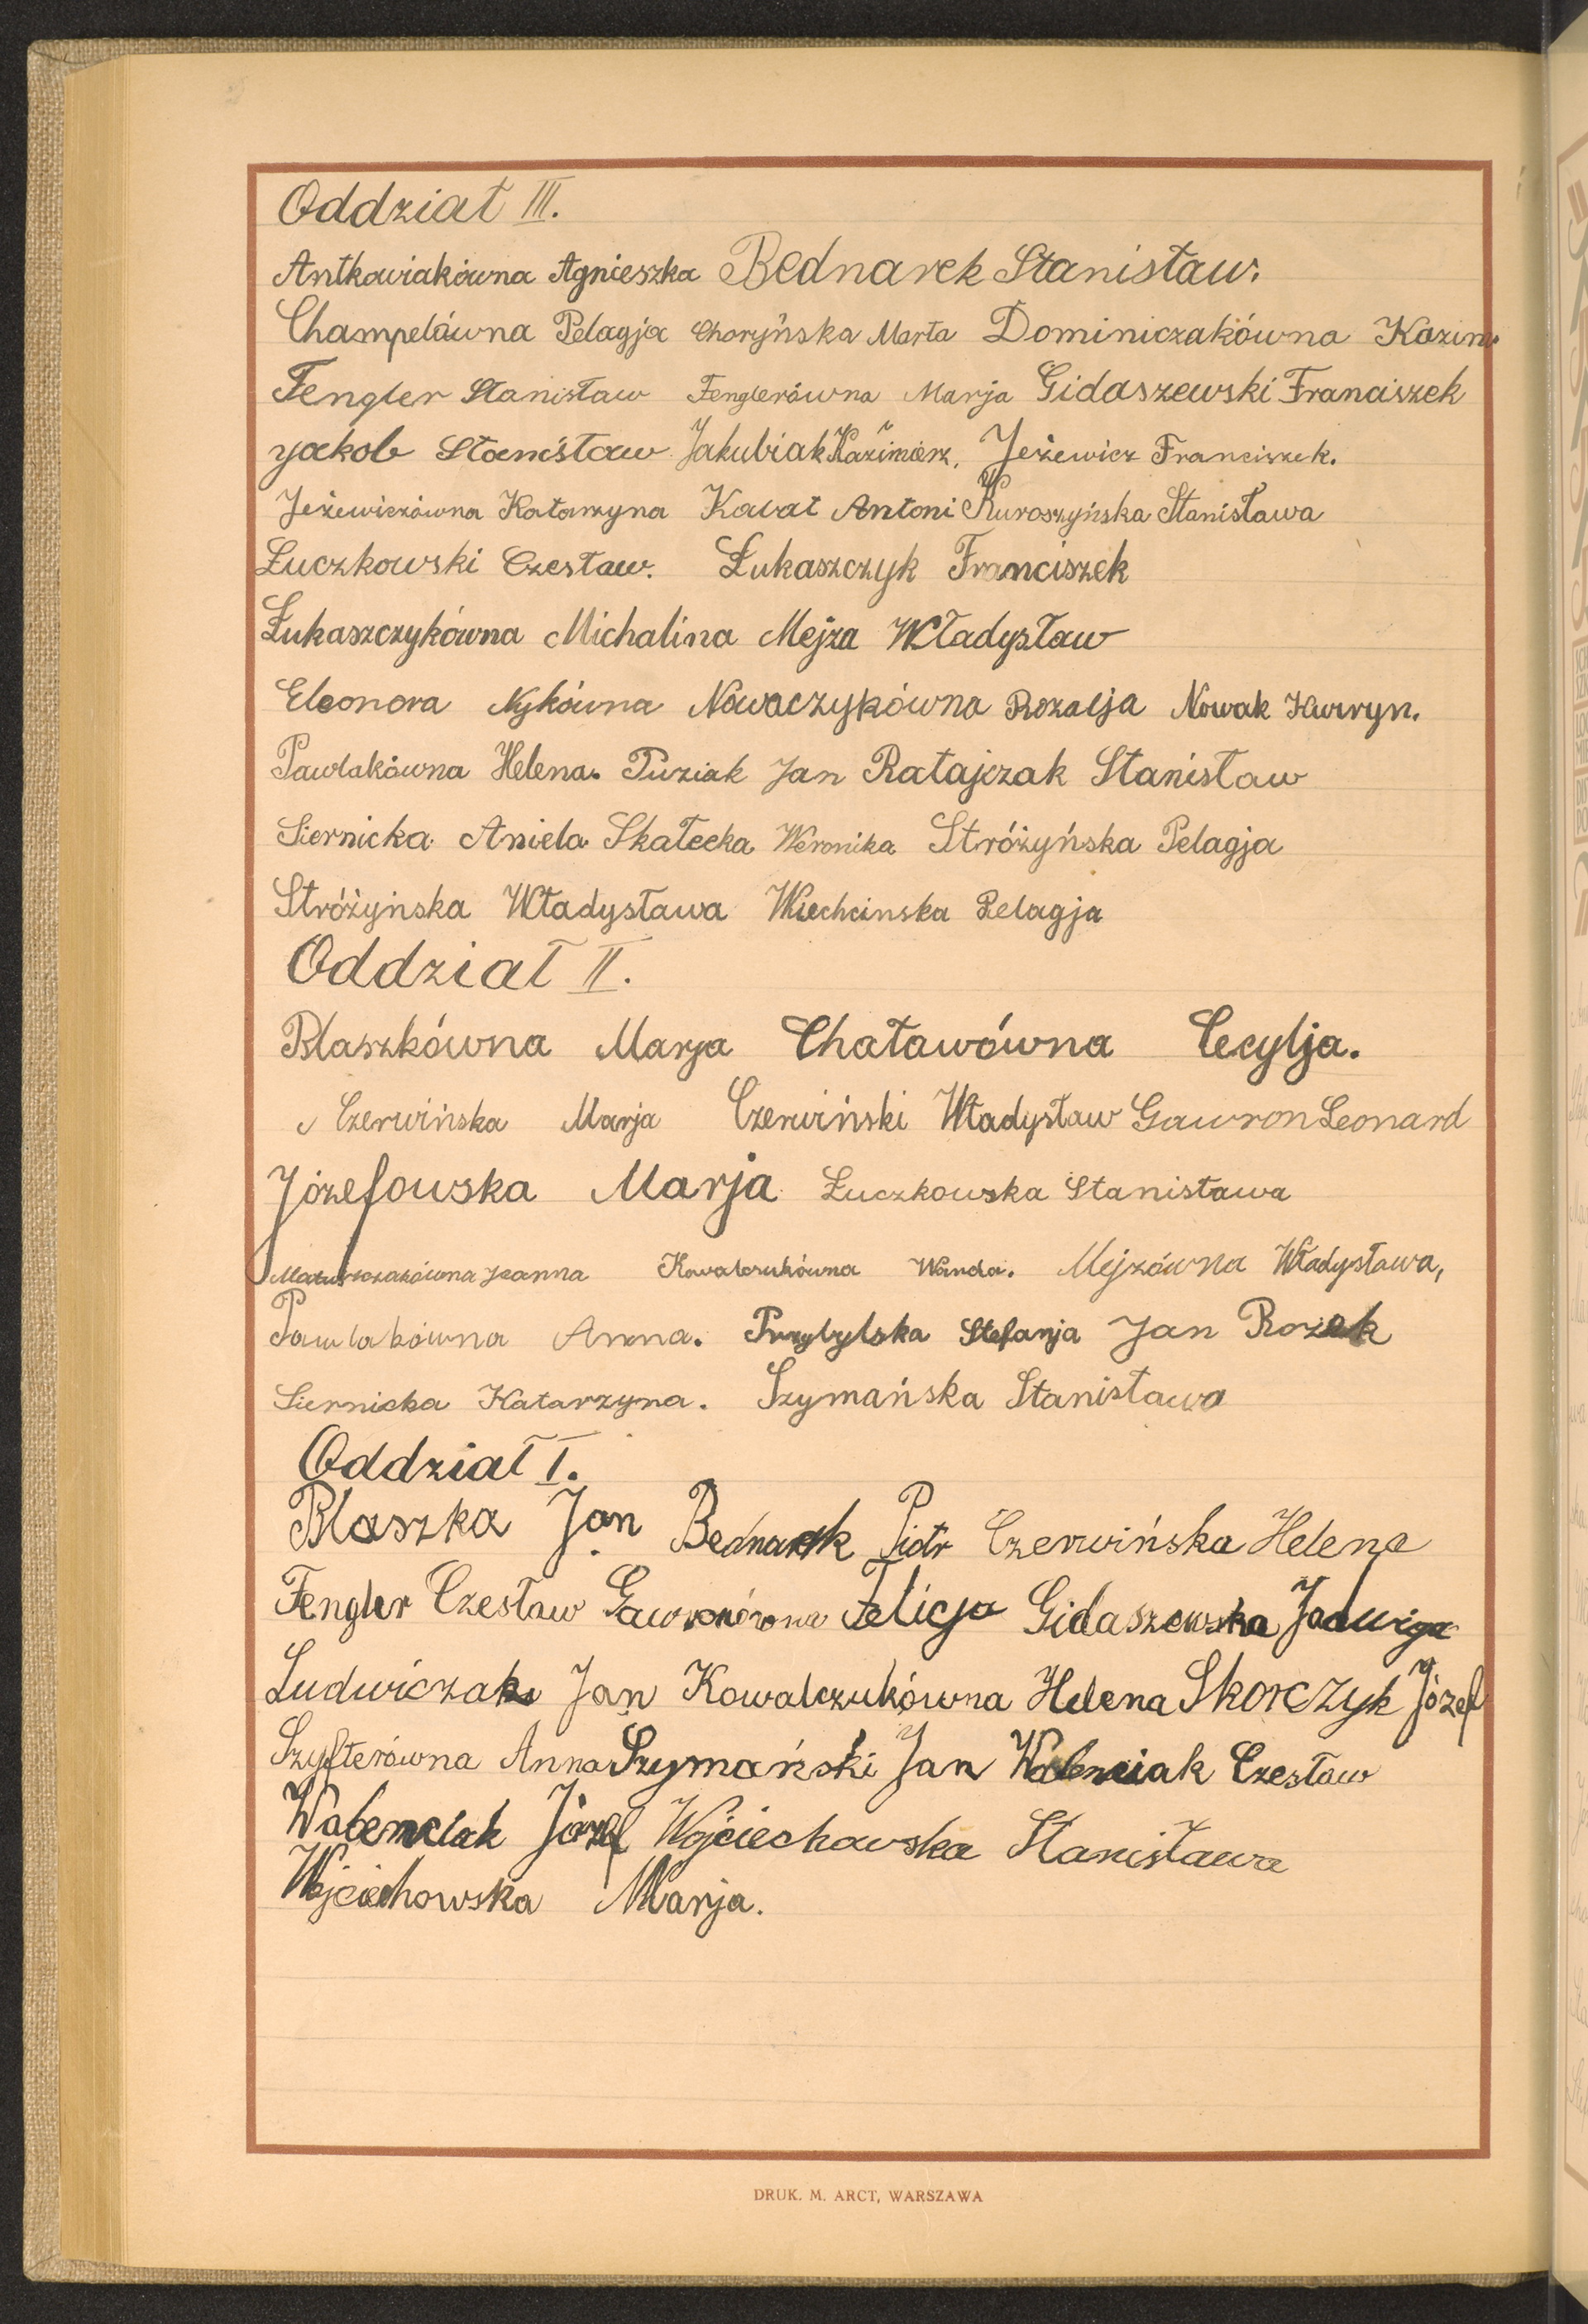 Oddział III.
Antkowiakówna Agnieszka Bednarek Stanisław.
Champelówna Pelagja Choryńska Marta Dominiczakówna Kazim.
Fengler Stanisław Fenglerówna Marja Gidaszewski Franciszek
Jakob Stanisław Jakubiak Kazimierz, Jeżewicz Franciszek.
Jeżewiczówna Katarzyna Kawat Antoni Kuroszyńska Stanisława
Łuczkowski Czesław. Łukaszczyk Franciszek
Łukaszczykówna Michalina Mejza Władysław
Eleonora Nykówna Nowaczykówna Rozalja Nowak Kwiryn.
Pawlakówna Helena. Puziak Jan Ratajczak Stanisław
Siernicka Aniela Skałecka Weronika Stróżyńska Pelagja
Stróżyńska Władysława Wiechcinska Pelagja
Oddział II.
Blaszkówna Marja Chatawówna Cecylja.
Czerwińska Marja Czerwiński Władysław Gawron Leonard
Józefowska Marja Łuczkowska Stanisława
Joanna Kowalczukówna Wanda. Mejzówna Władysława,
Pawlakówna Anna. Przybylska Stefanja Jan Rozek
Siernicka Katarzyna. Szymańska Stanisława
Oddział I.
Blaszka Jan Bednarek Piotr Czerwińska Helena
Fengler Czesław Gawronówna Felicja Gidaszewska Jadwiga
Ludwiczak Jan Kowalczukówna Helena Skorczyk Józef
Szyfterówna Anna Szymański Jan Walenciak Czesław
Walenciak Józef Wojciechowska Stanisława
Wojciechowska Marja.
DRUK. M. ARCT, WARSZAWA